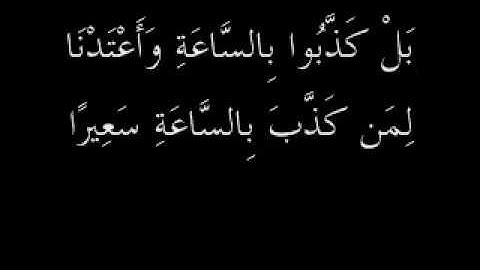 بَلْ كَذَّبُوا بِالسَّاعَةِ وَأَعْتَدْنَا
لِمَن كَذَّبَ بِالسَّاعَةِ سَعِيرًا